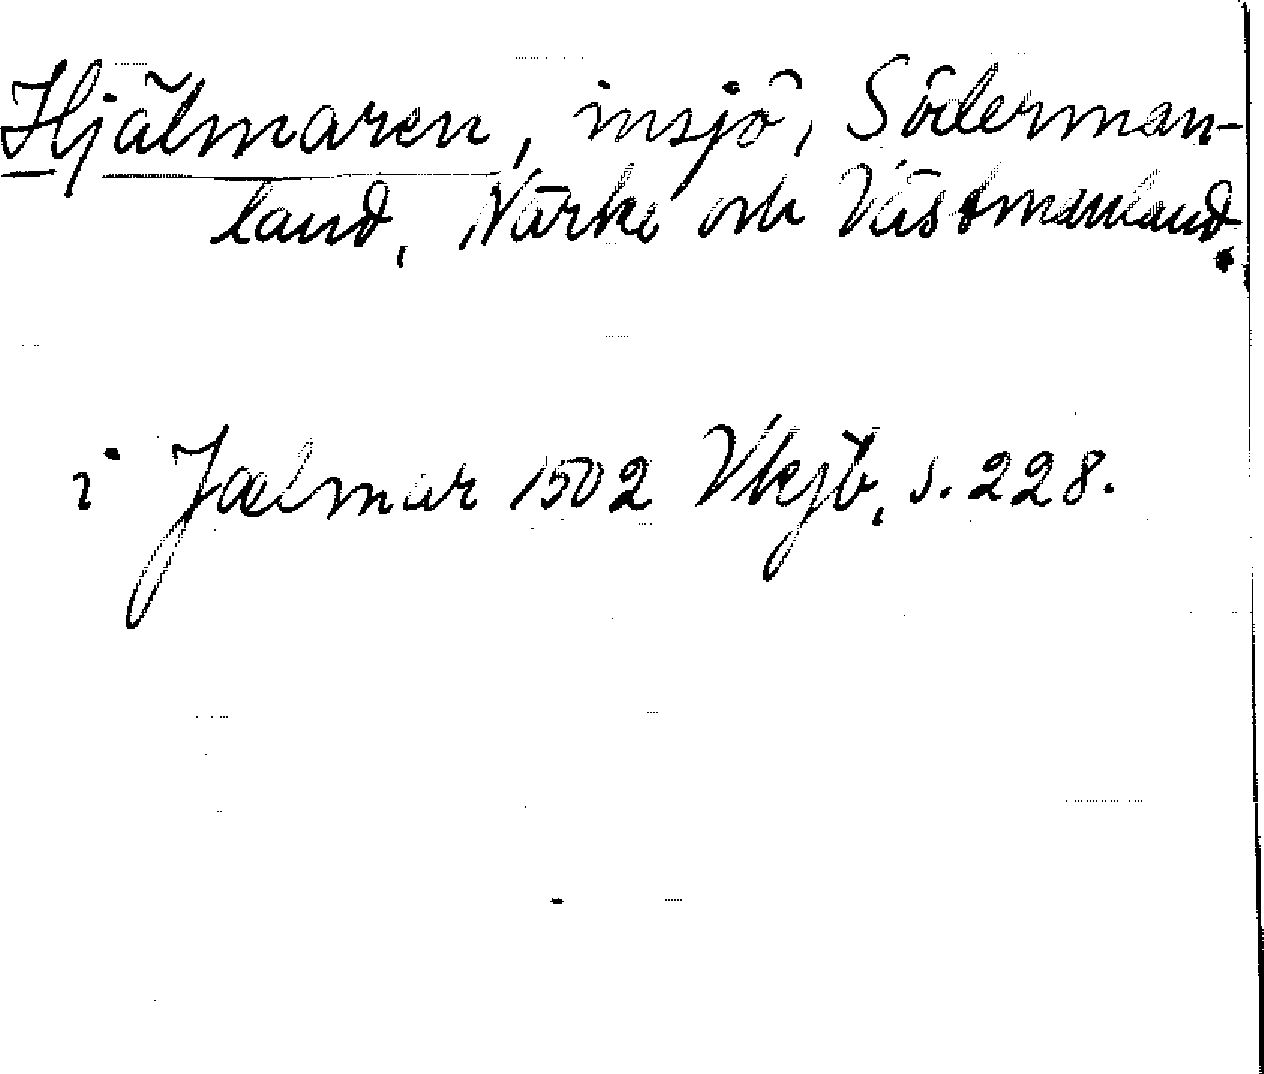 Hjälmaren, insjö, Söderman-
land, Närke och Västmanland.
i Jælmar 1502 Vkjb, s. 228.